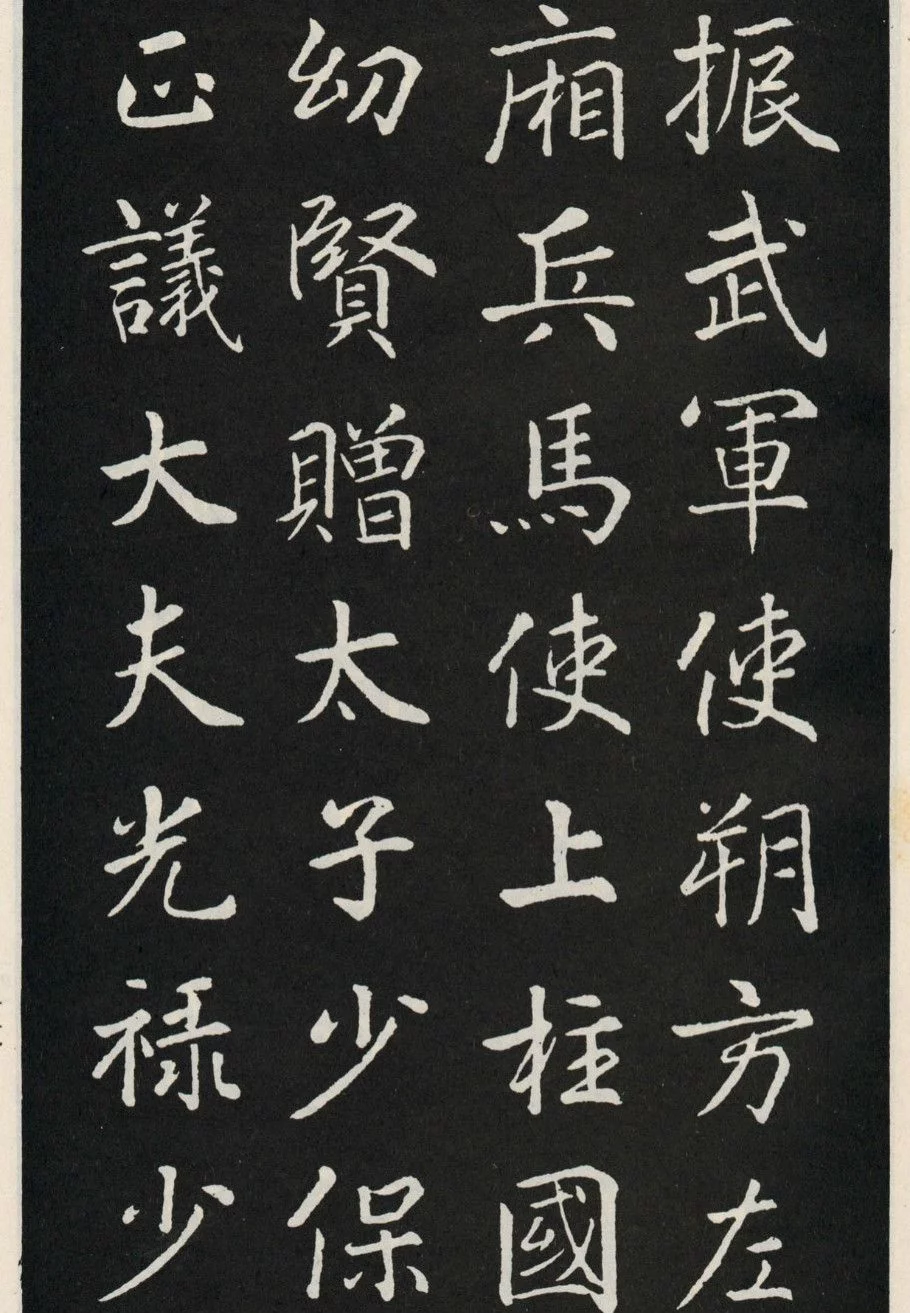 振武軍使朔方左
廂兵馬使上柱國
幼賢贈太子少保
正議大夫光禄少